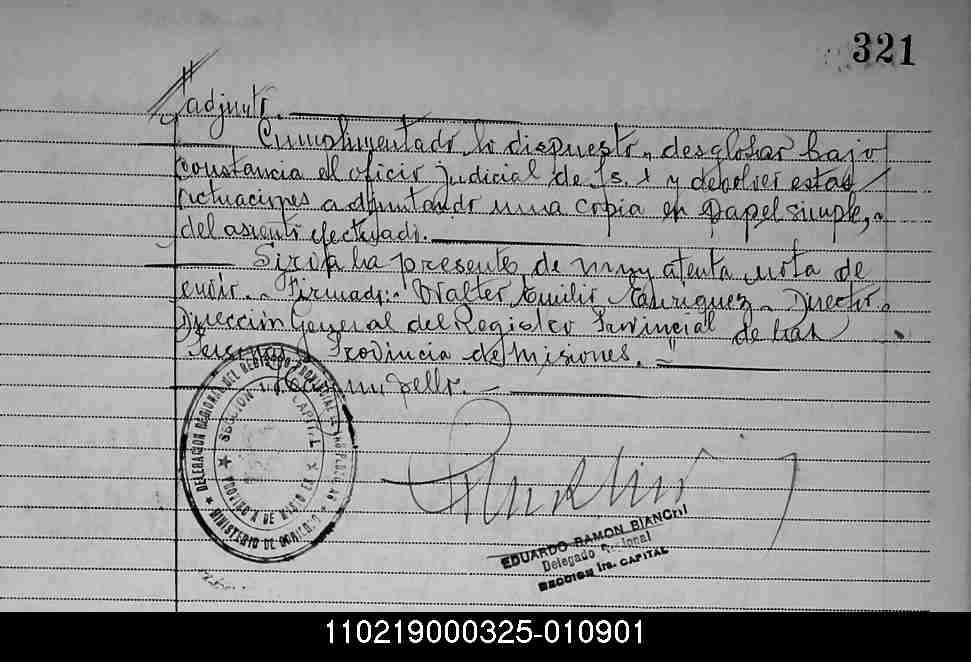 321
adjunto.
Cumplimentado lo dispuesto, desglosar bajo
constancia el oficio judicial de fs. 1 y devolver estas
actuaciones adjuntando una copia en papel simple,
del asiento efectuado.
Sirva la presente de muy atenta nota de
envío. Firmado: Walter Emilio Enriquez. Director.
Dirección General del Registro Provincial de las
Personas Provincia de Misiones.
sello.
DELEGACION REGIONAL DEL REGISTRO PROVINCIAL
SECCION CAPITAL
MINISTERIO DE GOBIERNO
EDUARDO RAMON BIANCHI
Delegado Regional
SECCION 1ra. CAPITAL
110219000325-010901